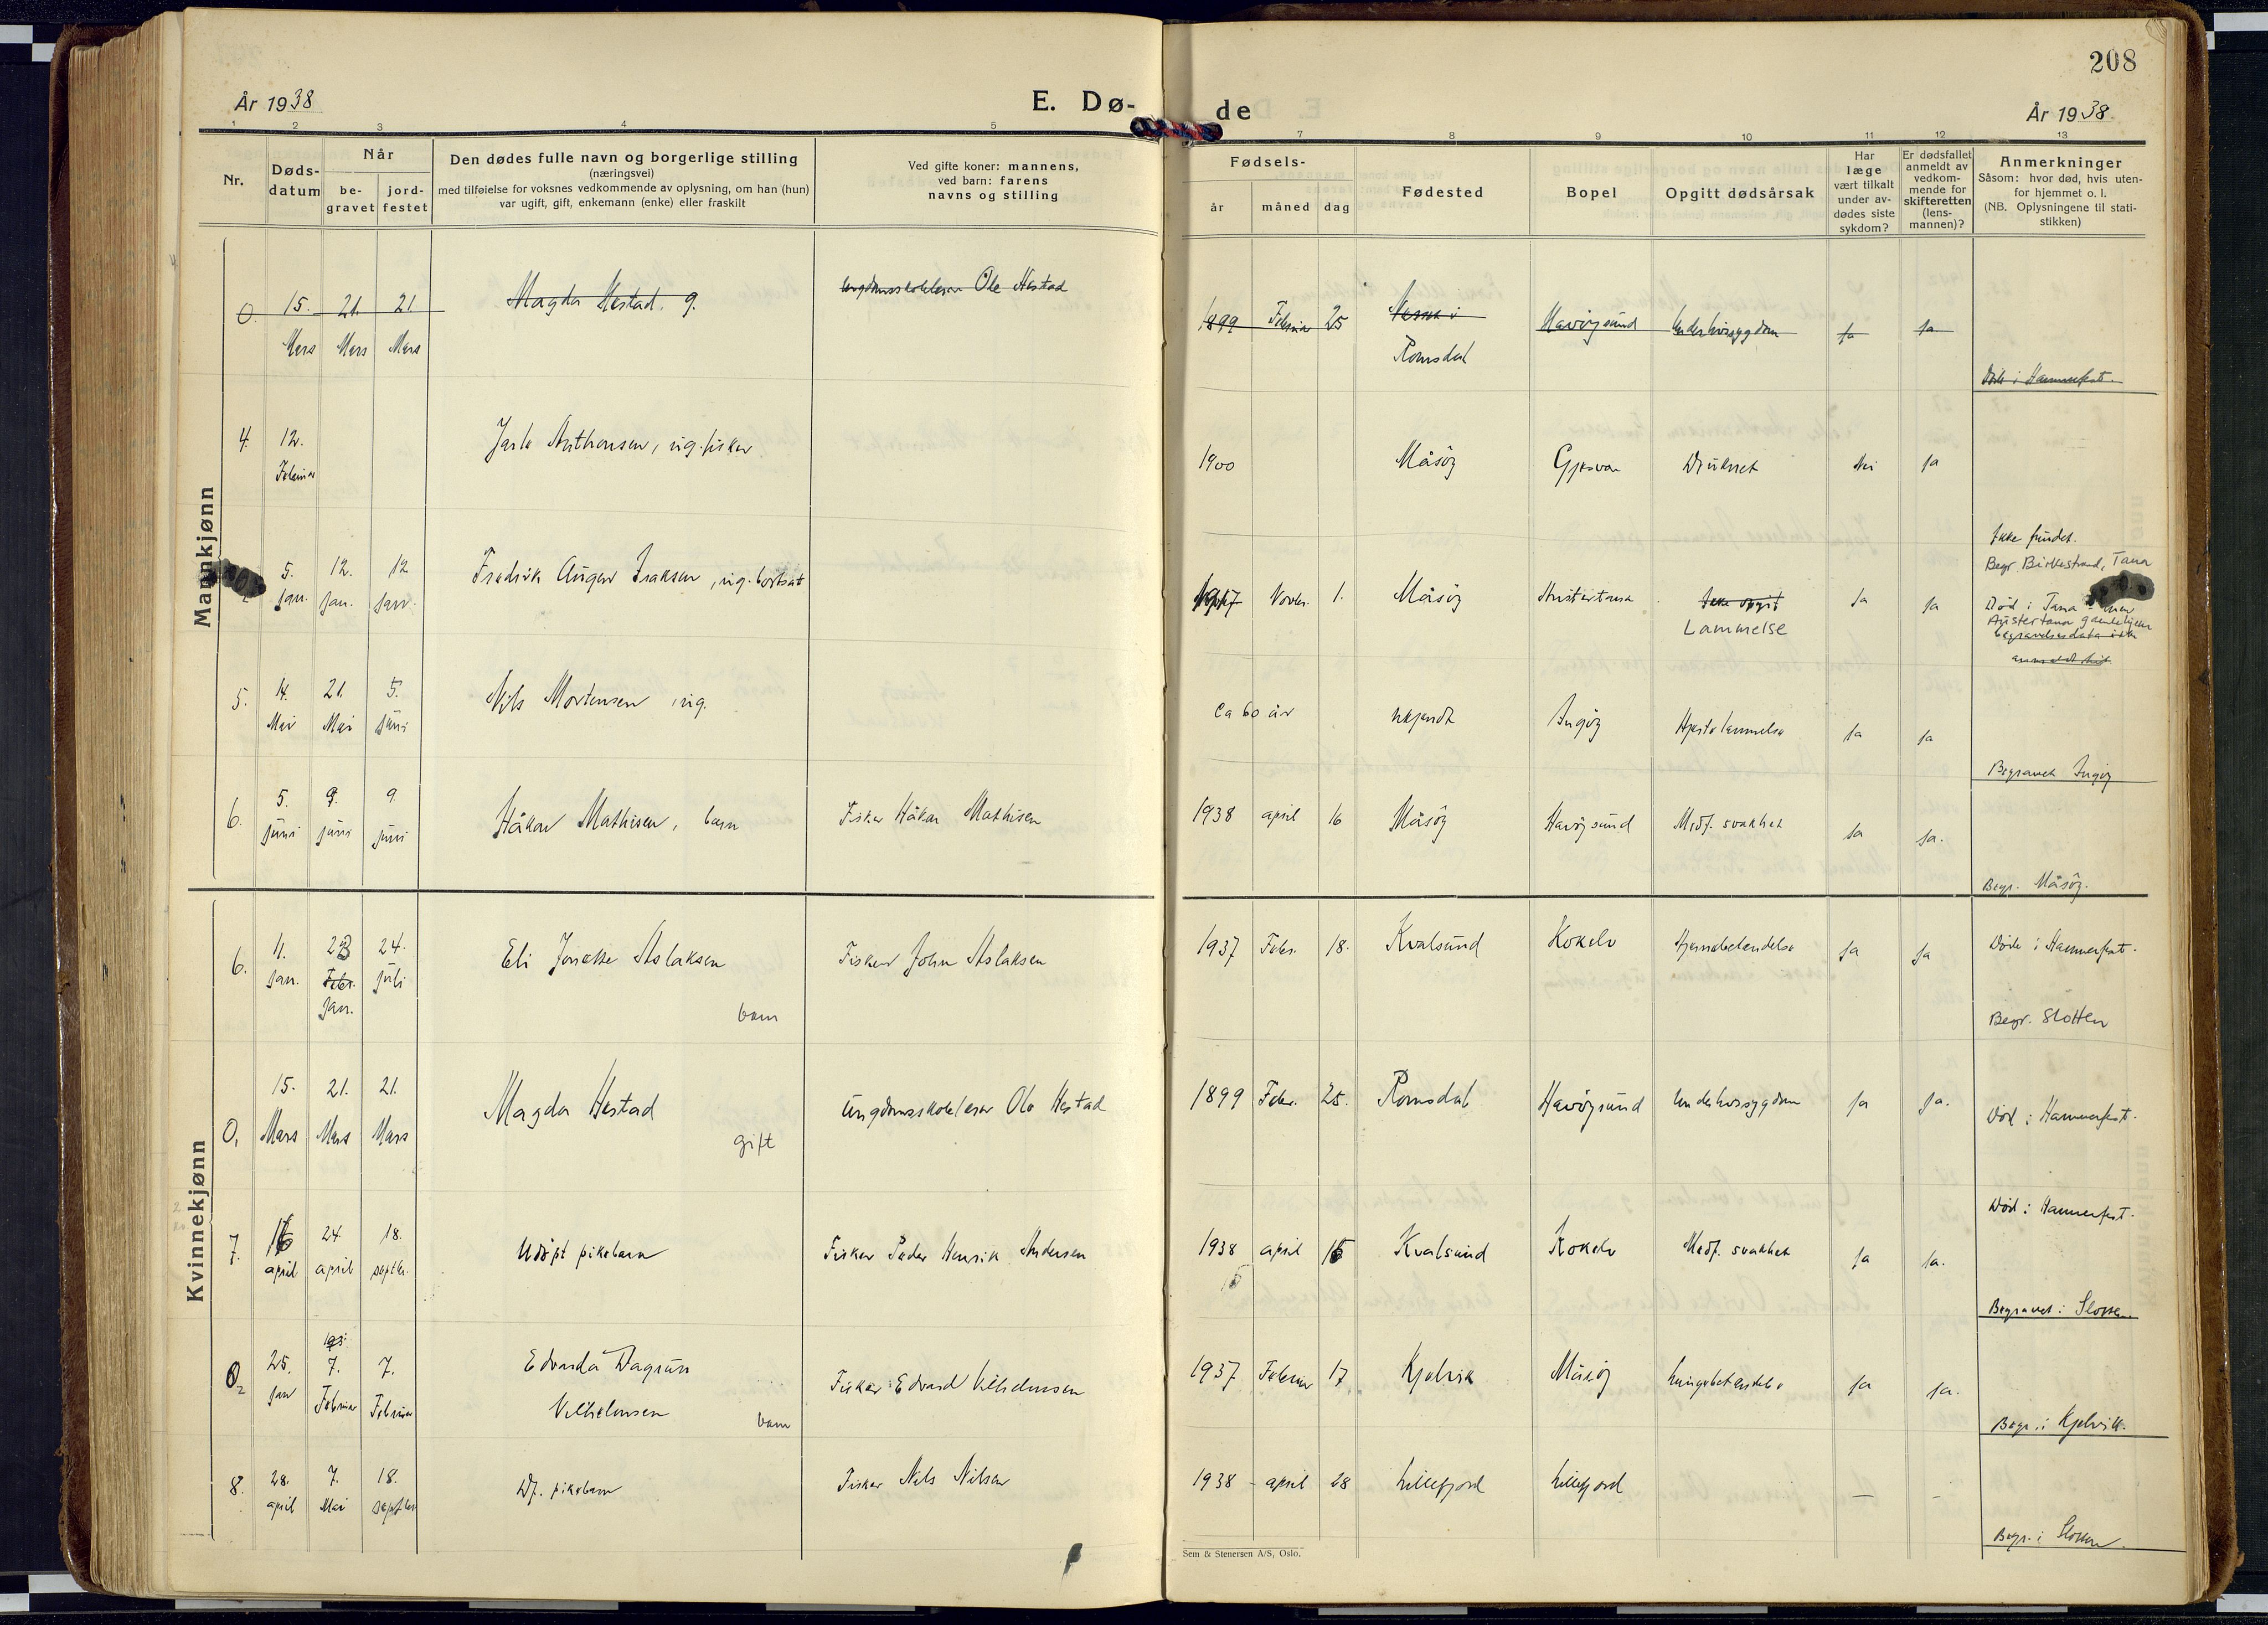 208
År 1938
E. Dø-
de
År 1938.
1 2 3 4 5 7 8 9 10 11 12 13
Nr.
Døds-
datum
Når
be-
gravet
jord-
festet
Den dødes fulle navn og borgerlige stilling
(næringsvei)
med tilføielse for voksnes vedkommende av oplysning, om han (hun)
var ugift, gift, enkemann (enke) eller fraskilt
Ved gifte koner: mannens,
ved barn: farens
navns og stilling
Fødsels-
år måned dag
Fødested
Bopel
Opgitt dødsårsak
Har
læge
vært tilkalt
under av-
dødes siste
sykdom?
Er dødsfallet
anmeldt av
vedkom-
mende for
skifteretten
(lens-
mannen)?
Anmerkninger
Såsom: hvor død, hvis uten-
for hjemmet o. l.
(NB. Oplysningene til stati-
stikken)
Mannkjønn
0. 15. 21. 21 Magda Hestad. g. ungdomsskolelærer Ole Hestad 1899 Februar 25 i Havöysund Underlivssygdom Ja Ja
Mars Mars Mars Romsdal
Död i Hammerfest.
4. 12. Jarle Anthonsen, ug. fisker 1900 Måsöy Gjesvær Druknet Nei Ja
Februar
Ikke fundet.
Begr. Birkestrand, Tana
5. 12. 12. Fredrik August Isaksen, ug. Novbr. 1. Måsöy Austertana Ikke opgit Ja Ja
jan. jan. jan. Lammelse
Död i Tana
Austertana gamlehjem
begravelsesdata ikke
anmeldt hit.
5. 14. 21. 5. Nils Mortensen ug. Ca 60 år ukjendt Ingöy Hjertelammelse Ja Ja
Mai Mai Juni
Begravet Ingöy
6. 5. 9. 9. Håkon Mathisen, barn Fisker Håkon Mathisen 1938 april 16 Måsöy Havöysund Medf. svakhet Ja Ja.
juni juni juni
Begr. Måsöy.
Kvinnekjønn
6. 11. 23 24. Eli Jonette Aslaksen Fisker John Aslaksen 1937 Febr. 18. Kvalsund Kokelv Hjernebetendelse Ja Ja Död i Hammerfest.
jan. Febr. juli
jan. barn
Begr. Slotten
0, 15. 21. 21. Magda Hestad Ungdomsskolelærer Ole Hestad 1899 Febr. 25. Romsdal Havöysund Underlivssygdom Ja Ja. Död i Hammerfest.
Mars Mars Mars gift
Död i Hammerfest.
7. 16 24 18. Udöpt pikebarn Fisker Peder Henrik Andersen 1938 april 15 Kvalsund Kokelv Medf. svakhet Ja Ja.
april april septbr. 15
Begravet i Slotten.
0₂ 25. 7. 7. Edvarda Dagrun Fisker Edvard Vilhelmsen 1937 Februar 17 Kjelvik Måsöy Lungebetendelse Ja Ja.
jan Februar Februar Vilhelmsen barn
Begr. i Kjelvik.
8. 28. 7. 18. Df. pikebarn Fisker Nils Nilsen 1938 - april 28 Lillefjord Lillefjord — -
april Mai septbr
Begr. i Slotten.
Sem & Stenersen A/S, Oslo.